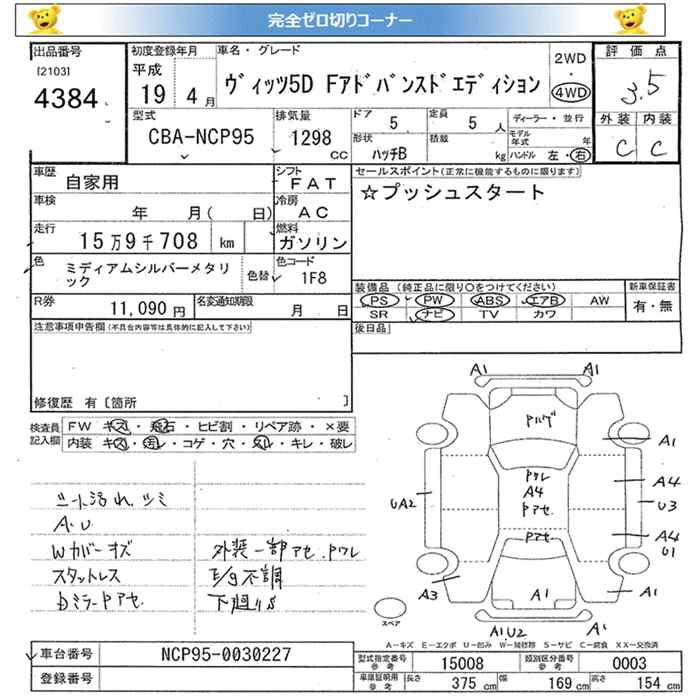 完全ゼロ切りコーナー
出品番号 初度登録年月 車名・グレード 2WD 評価点
[2103] 平成 ヴィッツ5D Fアドバンスドエディション 3.5
4384 19 4 月 4WD
型式 排気量 ドア 5 定員 5 人 ディーラー・並行 外装 内装
CBA-NCP95 1298 CC 形状 ハッチB 積載 kg モデル年式 年 C C
ハンドル 左・右
車歴 自家用 シフト FAT セールスポイント(正常に機能するものに限ります)
車検 年 月( 日) 冷房 AC ☆プッシュスタート
走行 15万9千708 km 燃料 ガソリン
色 ミディアムシルバーメタリック 色替 色コード 1F8
装備品 (純正品に限り○をつけてください) 新車保証書
R券 11,090 円 名変通知期限 月 日 PS PW ABS エアB AW 有・無
SR ナビ TV カワ
注意事項申告欄(不具合内容等は具体的に記入して下さい) 後日品
修復歴 有 [箇所 ]
検査員記入欄 FW キズ・飛石・ヒビ割・リペア跡・×要
内装 キズ・汚レ・コゲ・穴・スレ・キレ・破レ
シート汚れ、シミ
A.U
Wカバーキズ 外装一部アセ.Pワレ
スタットレス E/g不調
Dミラー Pアセ. 下廻りS
A1 A1
Pハゲ
A1
Pワレ
A4 A4
UA2 Pアセ U3
Pアセ A4
U1
A3 A1 A1
スペア A1.U2 A1
A-キズ E-エクボ U-凹み W-補修跡 S-サビ C-腐食 XX-交換済
車台番号 NCP95-0030227 型式指定番号 参考 15008 類別区分番号 参考 0003
登録番号 車庫証明用 参考 長さ 375 cm 幅 169 cm 高さ 154 cm